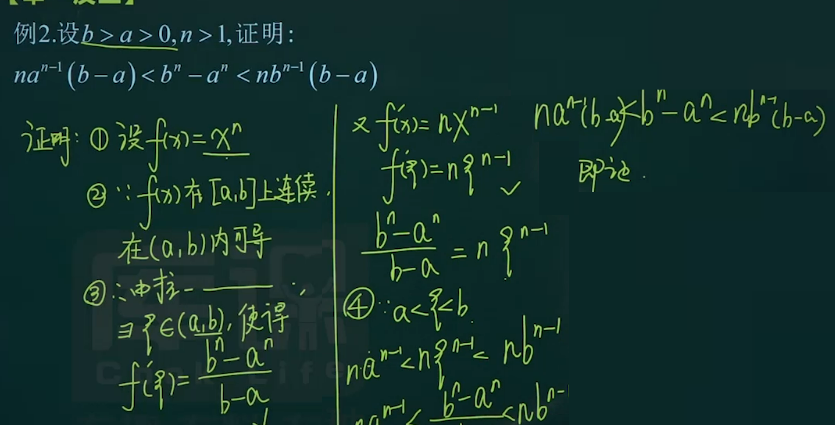 例2.设b > a > 0, n > 1, 证明:
na^{n-1}(b-a) < b^n - a^n < nb^{n-1}(b-a)
证明: ① 设 f(x) = x^n
② ∵ f(x) 在 [a,b] 上连续,
在 (a,b) 内可导
③ ∴ 由拉——
∃ ξ ∈ (a,b), 使得
f'(ξ) = \frac{b^n - a^n}{b-a}
又 f'(x) = nx^{n-1}
f'(ξ) = nξ^{n-1} ✓
\frac{b^n - a^n}{b-a} = nξ^{n-1}
④ ∵ a < ξ < b
na^{n-1} < nξ^{n-1} < nb^{n-1}
na^{n-1} < b^n - a^n < nb^{n-
na^{n-1}(b-a) < b^n - a^n < nb^{n-1}(b-a)
即证.